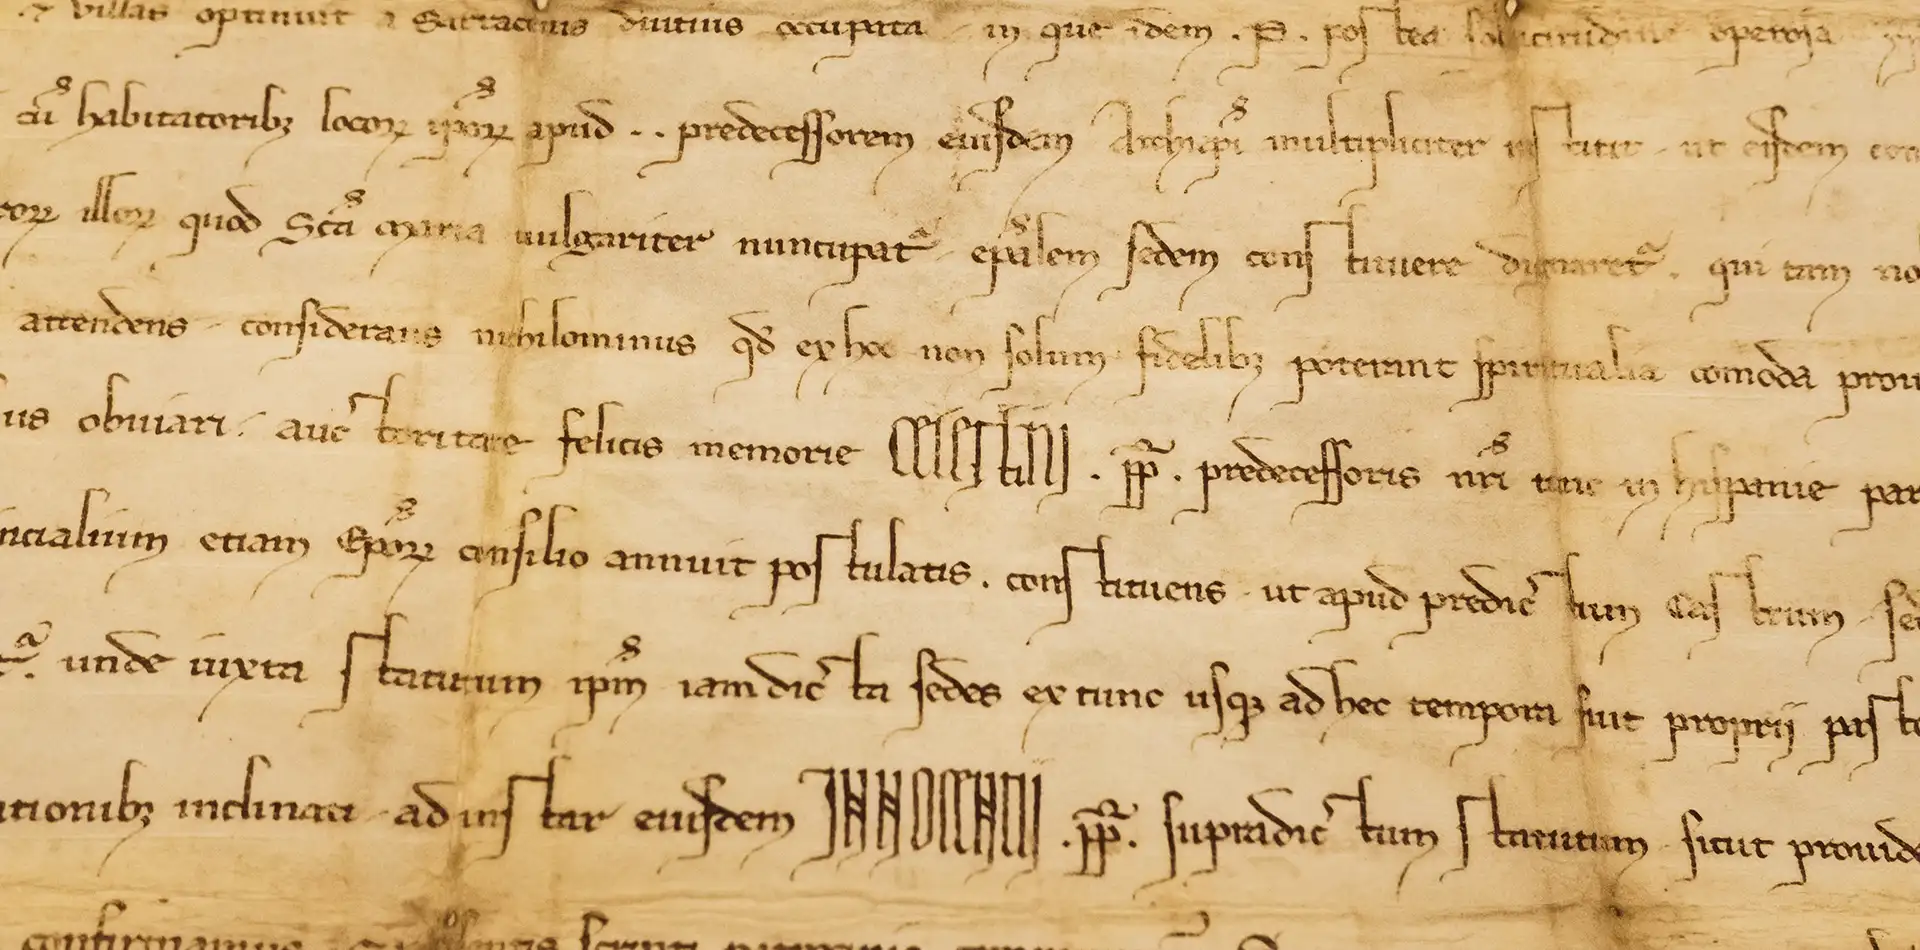 villas optinuit a Sarracenis diutius occupata in que idem . P . postea sollicitudine operosa
cū habitatoribꝫ locoꝝ ipoꝝ apud .. predecessorem eiusdem Archiepi multipliciter institit ut eisdem
illoꝝ quod Scā Maria uulgariter nuncupat epalem sedem constituere dignaret . qui tam
attendens considerans nichilominus qd ex hoc non solum fidelibꝫ poterunt spiritualia comoda
us obuiari . auctoritate felicis memorie Celestini . pp . predecessoris nri tunc in hispanie
incialium etiam Epoꝝ consilio annuit postulatis . constituens ut apud predictum Castrum
unde iuxta statutum ipm iamdicta sedes ex tunc usqꝫ ad hec tempora fuit proprij
inclinati ad instar eiusdem Innocentii . pp . supradictum statutum sicut prouide
confirmamus scripti